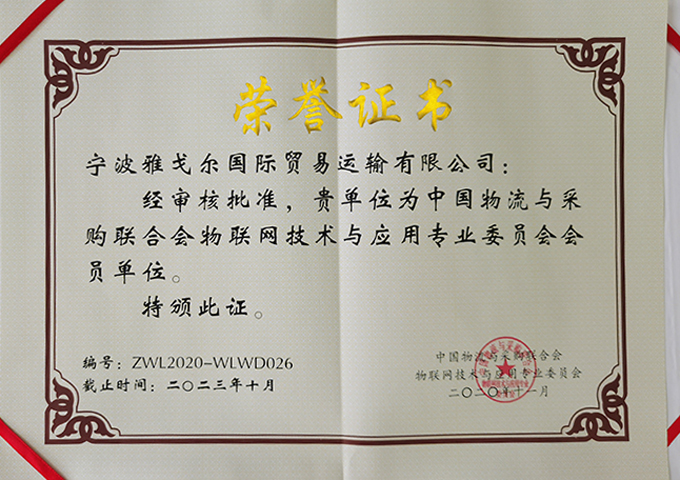 荣誉证书
宁波雅戈尔国际贸易运输有限公司：
经审核批准，贵单位为中国物流与采
购联合会物联网技术与应用专业委员会会
员单位。
特颁此证。
编号：ZWL2020-WLWD026
截止时间：二〇二三年十月
中国物流与采购联合会
物联网技术与应用专业委员会
二〇二〇年十一月